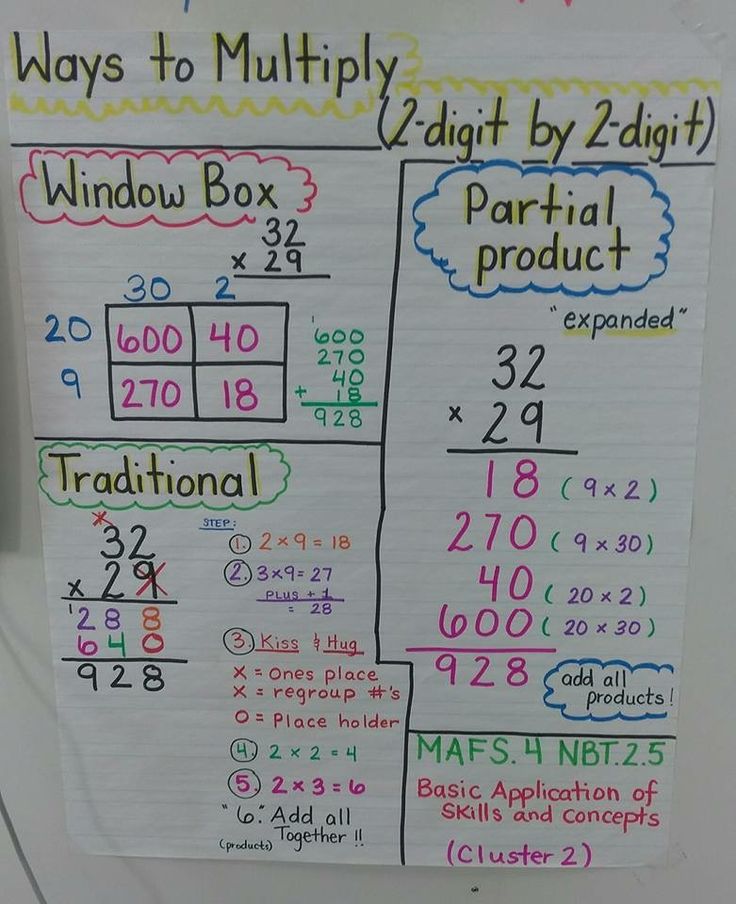 Ways to Multiply
(2-digit by 2-digit)
Window Box
32
x 29
30 2
20 600 40
9 270 18
1
600
270
40
+ 18
928
Traditional
32
x 29
1
288
640
928
STEP:
1. 2 x 9 = 18
2. 3x9=27
PLUS + 1
= 28
3. Kiss & Hug
X = Ones place
X = regroup #'s
O = Place holder
4. 2 x 2 = 4
5. 2 x 3 = 6
"6." Add all
Together !!
(products)
Partial
product
"expanded"
32
x 29
18 (9 x 2)
270 (9 x 30)
40 (20 x 2)
600 (20 x 30)
928
add all
products!
MAFS.4 NBT.2.5
Basic Application of
Skills and concepts
(Cluster 2)